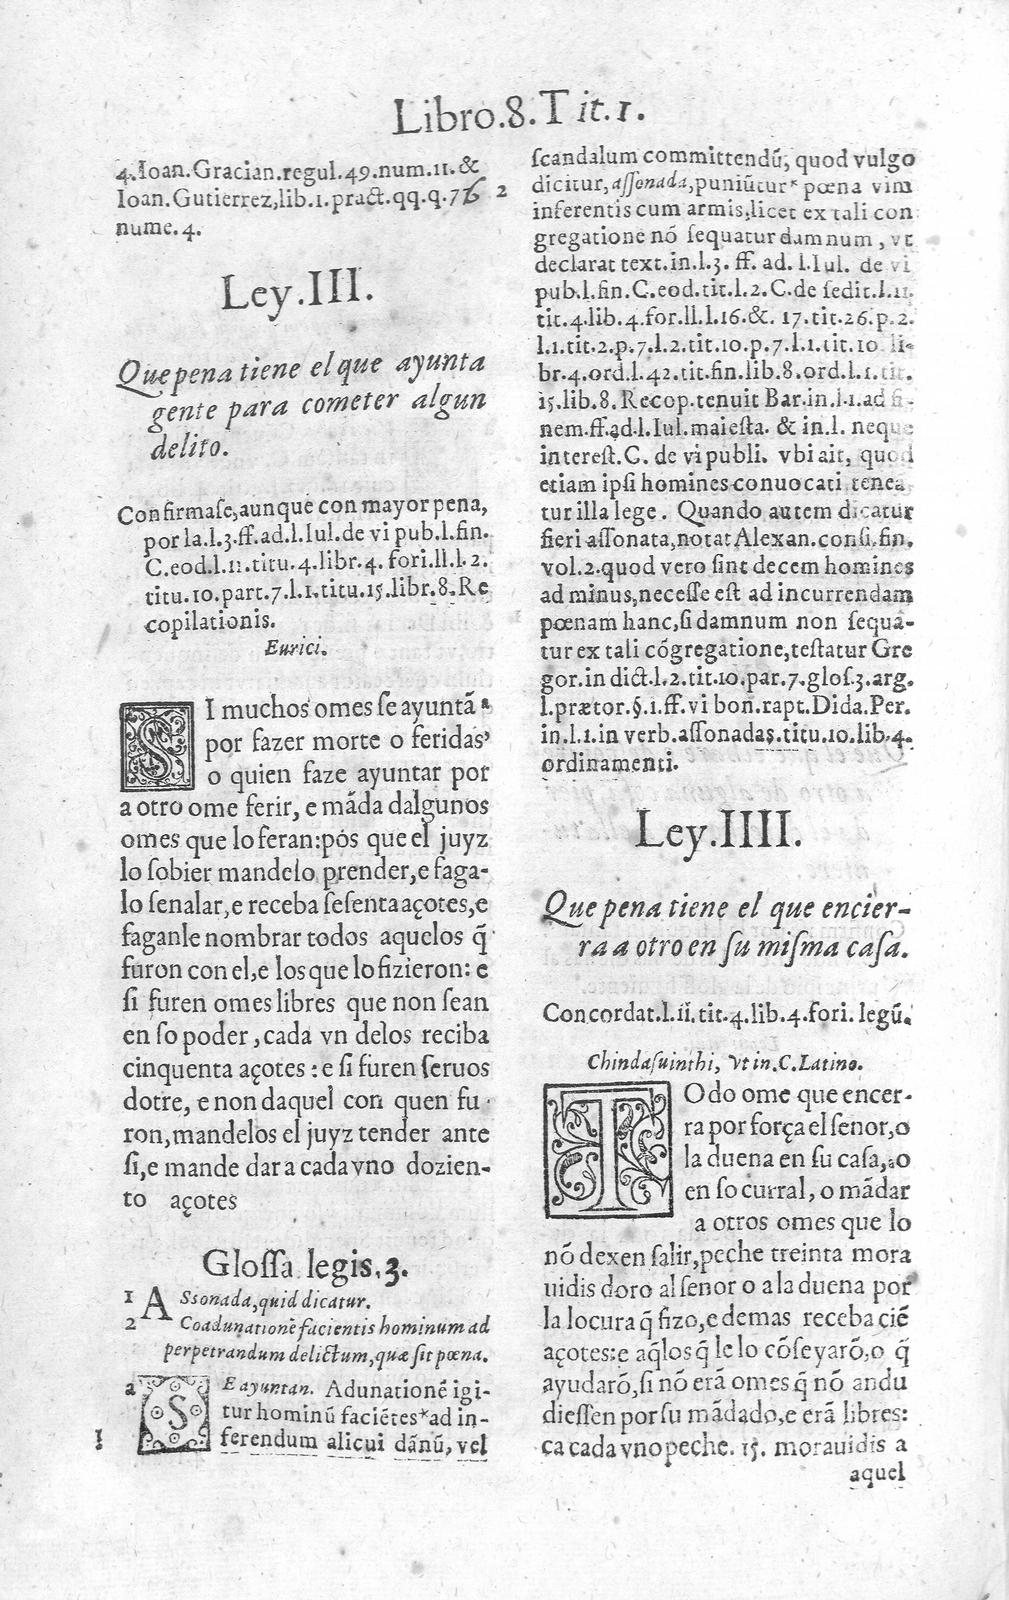 Libro.8.Tit.1.
4.Ioan.Gracian.regul.49.num.11.&
Ioan.Gutierrez,lib.1.pract.qq.q.76
nume.4.
Ley.III.
Que pena tiene el que ayunta
gente para cometer algun
delito.
Confirmaſe,aunque con mayor pena,
por la.l.3.ff.ad.l.Iul.de vi pub.l.fin.
C.eod.l.11.titu.4.libr.4.fori.ll.l.2.
titu.10.part.7.l.1.titu.15.libr.8.Re
copilationis.
Eurici.
SI muchos omes ſe ayuntã ª
por fazer morte o feridas’
o quien faze ayuntar por
a otro ome ferir, e mãda dalgunos
omes que lo feran:pós que el juyz
lo ſobier mandelo prender,e faga-
lo ſenalar,e receba ſeſenta açotes,e
faganle nombrar todos aquelos q̃
furon con el,e los que lo fizieron: e
ſi furen omes libres que non ſean
en ſo poder, cada vn delos reciba
cinquenta açotes : e ſi furen ſeruos
dotre, e non daquel con quen fu
ron,mandelos el juyz tender ante
ſi,e mande dar a cada vno dozien-
to açotes
Gloſſa legis.3.
1 ASsonada,quid dicatur.
2 Coadunationẽ facientis hominum ad
perpetrandum delictum,quæ ſit pœna.
a SE ayuntan. Adunationẽ igi-
tur hominũ faciẽtes*ad in-
1 ferendum alicui dãnũ, vel
ſcandalum committendũ, quod vulgo
2 dicitur,aſſonada,puniũtur*pœna vim
inferentis cum armis,licet ex tali con
gregatione nõ ſequatur damnum , vt
declarat text.in.l.3. ff. ad. l.Iul. de vi
pub.l.fin.C.eod.tit.l.2.C.de ſedit.l.11.
tit.4.lib.4.for.ll.l.16.&. 17.tit.26.p.2.
l.1.tit.2.p.7.l.2.tit.10.p.7.l.1.tit.10 li-
br.4.ord.l.42.tit.fin.lib.8.ord.l.1.tit.
15.lib.8.Recop.tenuit Bar.in.l.1.ad fi-
nem.ff.ad.l.Iul.maieſta. & in.l. neque
intereſt.C. de vi publi. vbi ait, quod
etiam ipſi homines conuocati tenea
tur illa lege . Quando autem dicatur
fieri aſſonata,notat Alexan.conſi.fin.
vol.2.quod vero ſint decem homines
ad minus,neceſſe eſt ad incurrendam
pœnam hanc,ſi damnum non ſequa-
tur ex tali cõgregatione,teſtatur Gre
gor.in dict.l.2.tit.10.par.7.gloſ.3.arg.
l.prætor.§.1.ff.vi bon.rapt.Dida.Per.
in.l.1.in verb.aſſonadas.titu.10.lib.4.
ordinamenti.
Ley.IIII.
Que pena tiene el que encier-
ra a otro en ſu miſma caſa.
Concordat.l.ii.tit.4.lib.4.fori.legũ.
Chindaſuinthi, vt in.C.Latino.
TOdo ome que encer-
ra por força el ſenor,o
la duena en ſu caſa,o
en ſo curral, o mãdar
a otros omes que lo
nõ dexen ſalir,peche treinta mora
uidis doro al ſenor o a la duena por
la locura q̃ fizo,e demas receba ciẽ
açotes:e aq̃los q̃ le lo cõſeyarõ,o q̃
ayudarõ,ſi nõ erã omes q̃ nõ andu
dieſſen por ſu mãdado,e erã libres:
ca cada vno peche. 15. morauidis a
aquel